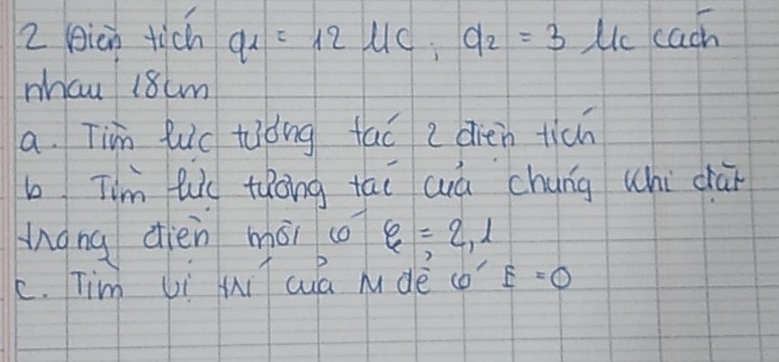 2 Điện tích q1 = 12 μC, q2 = 3 μC cách
nhau 18cm
a. Tìm lực tương tác 2 điện tích
b. Tìm lực tương tác của chúng khi đặt
trong điện môi có ε = 2,1
c. Tìm vị trí của M để có E = 0